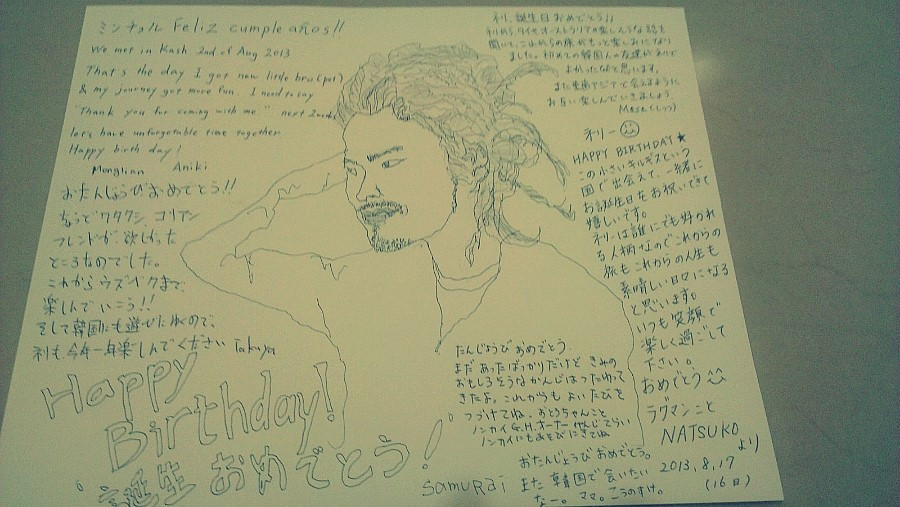 ミンチョル Feliz cumple años!!
We met in Kash 2nd of Aug 2013
That's the day I got new little bro(pet)
& my journey got more fun. I need to say
"Thank you for coming with me" next 2weeks
let's have unforgetable time together
Happy birth day!
Monglian Aniki
おたんじょうびおめでとう!!
ちょうどワタクシ コリアン
フレンドが欲しかった
ところなのでした。
これからウズベクまで、
楽しんでいこう!!
そして韓国にも遊び行くので、
利も今年一年楽しんでください Takuya
Happy
Birthday!
誕生おめでとう!
利、誕生日おめでとう!!
利からタイやオーストラリアの楽しそうな話を
聞いて、これからの旅がもっと楽しみになり
ました。初めての韓国人の友達が利で
よかったなと思います。
また東南アジアで会えるように
お互い楽しんでいきましょう。
Masa
利ー
HAPPY BIRTHDAY★
この小さいキルギスという
国で出会えて、一緒に
お誕生日をお祝いできて
嬉しいです。
利ーは誰にでも好かれ
る人柄なのでこれからの
旅もこれからの人生も
素晴しい日々になる
と思います。
いつも笑顔で
楽しく過ごして
下さい。
おめでとう
ラグマンこと
NATSUKO
より
2013,8,17
(16日)
たんじょうび おめでとう。
まだあったばっかりだけど きみの
おもしろそうなかんじはつたわって
きたよ。これからも よいたびを
つづけてね。おとうちゃんこと
ノンカイG.H.オーナー
ノンカイにもあそびにきてね
おたんじょうびおめでとう。
また韓国で会いたい
なー。ママ。こうのすけ。
SamuRai